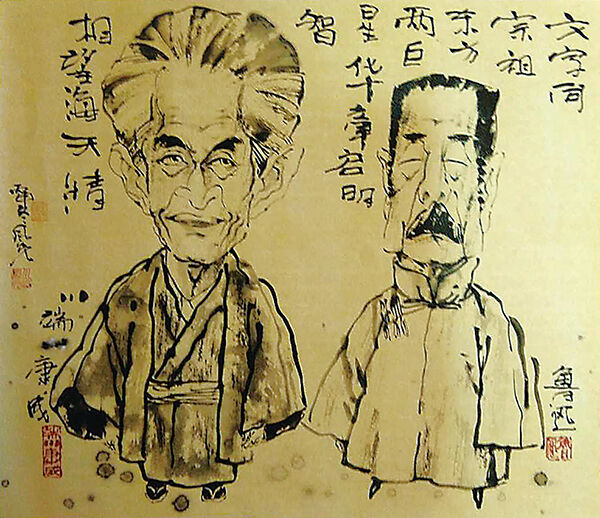 文字同
宗祖
东方
两巨
星华章启明
智
相望海天
鲁迅
川端康成